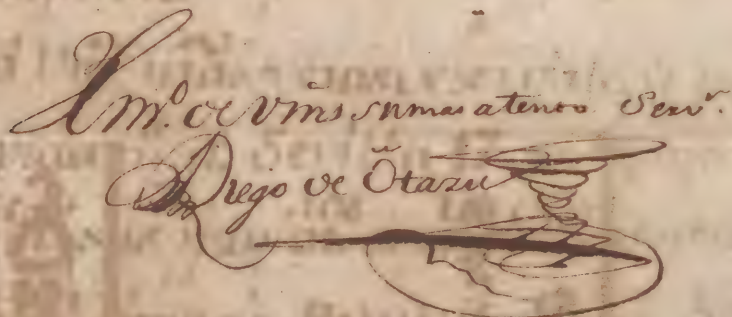 m.º de Vm̃s su mas atento Serv.ʳ
Diego de Õtazu